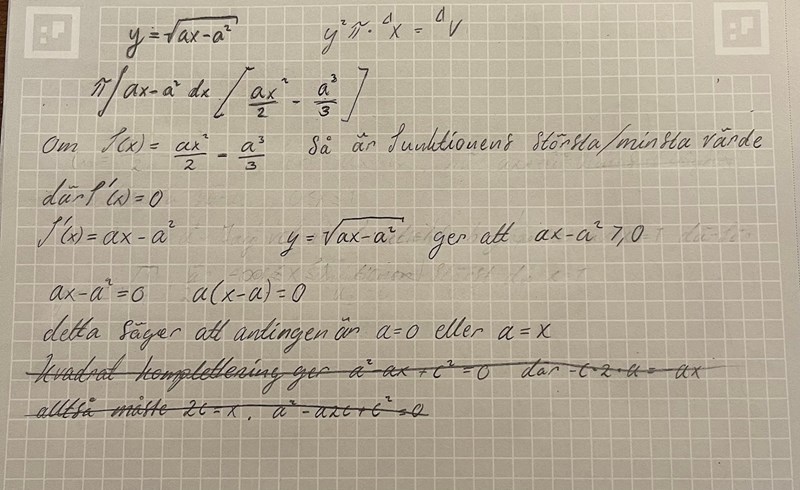 y=√(ax-a²) y²π·Δx = ΔV
π∫ax-a² dx [ax²/2 - a³/3]
Om f(x) = ax²/2 - a³/3 så är funktionens största/minsta värde
där f'(x)=0
f'(x)=ax-a² y=√(ax-a²) ger att ax-a² ≥ 0
ax-a²=0 a(x-a)=0
detta säger att antingen är a=0 eller a=x
kvadrat komplettering ger a²-ax+c²=0 där -c·2·a= ax
alltså måste 2c=x. a²-a2c+c²=0